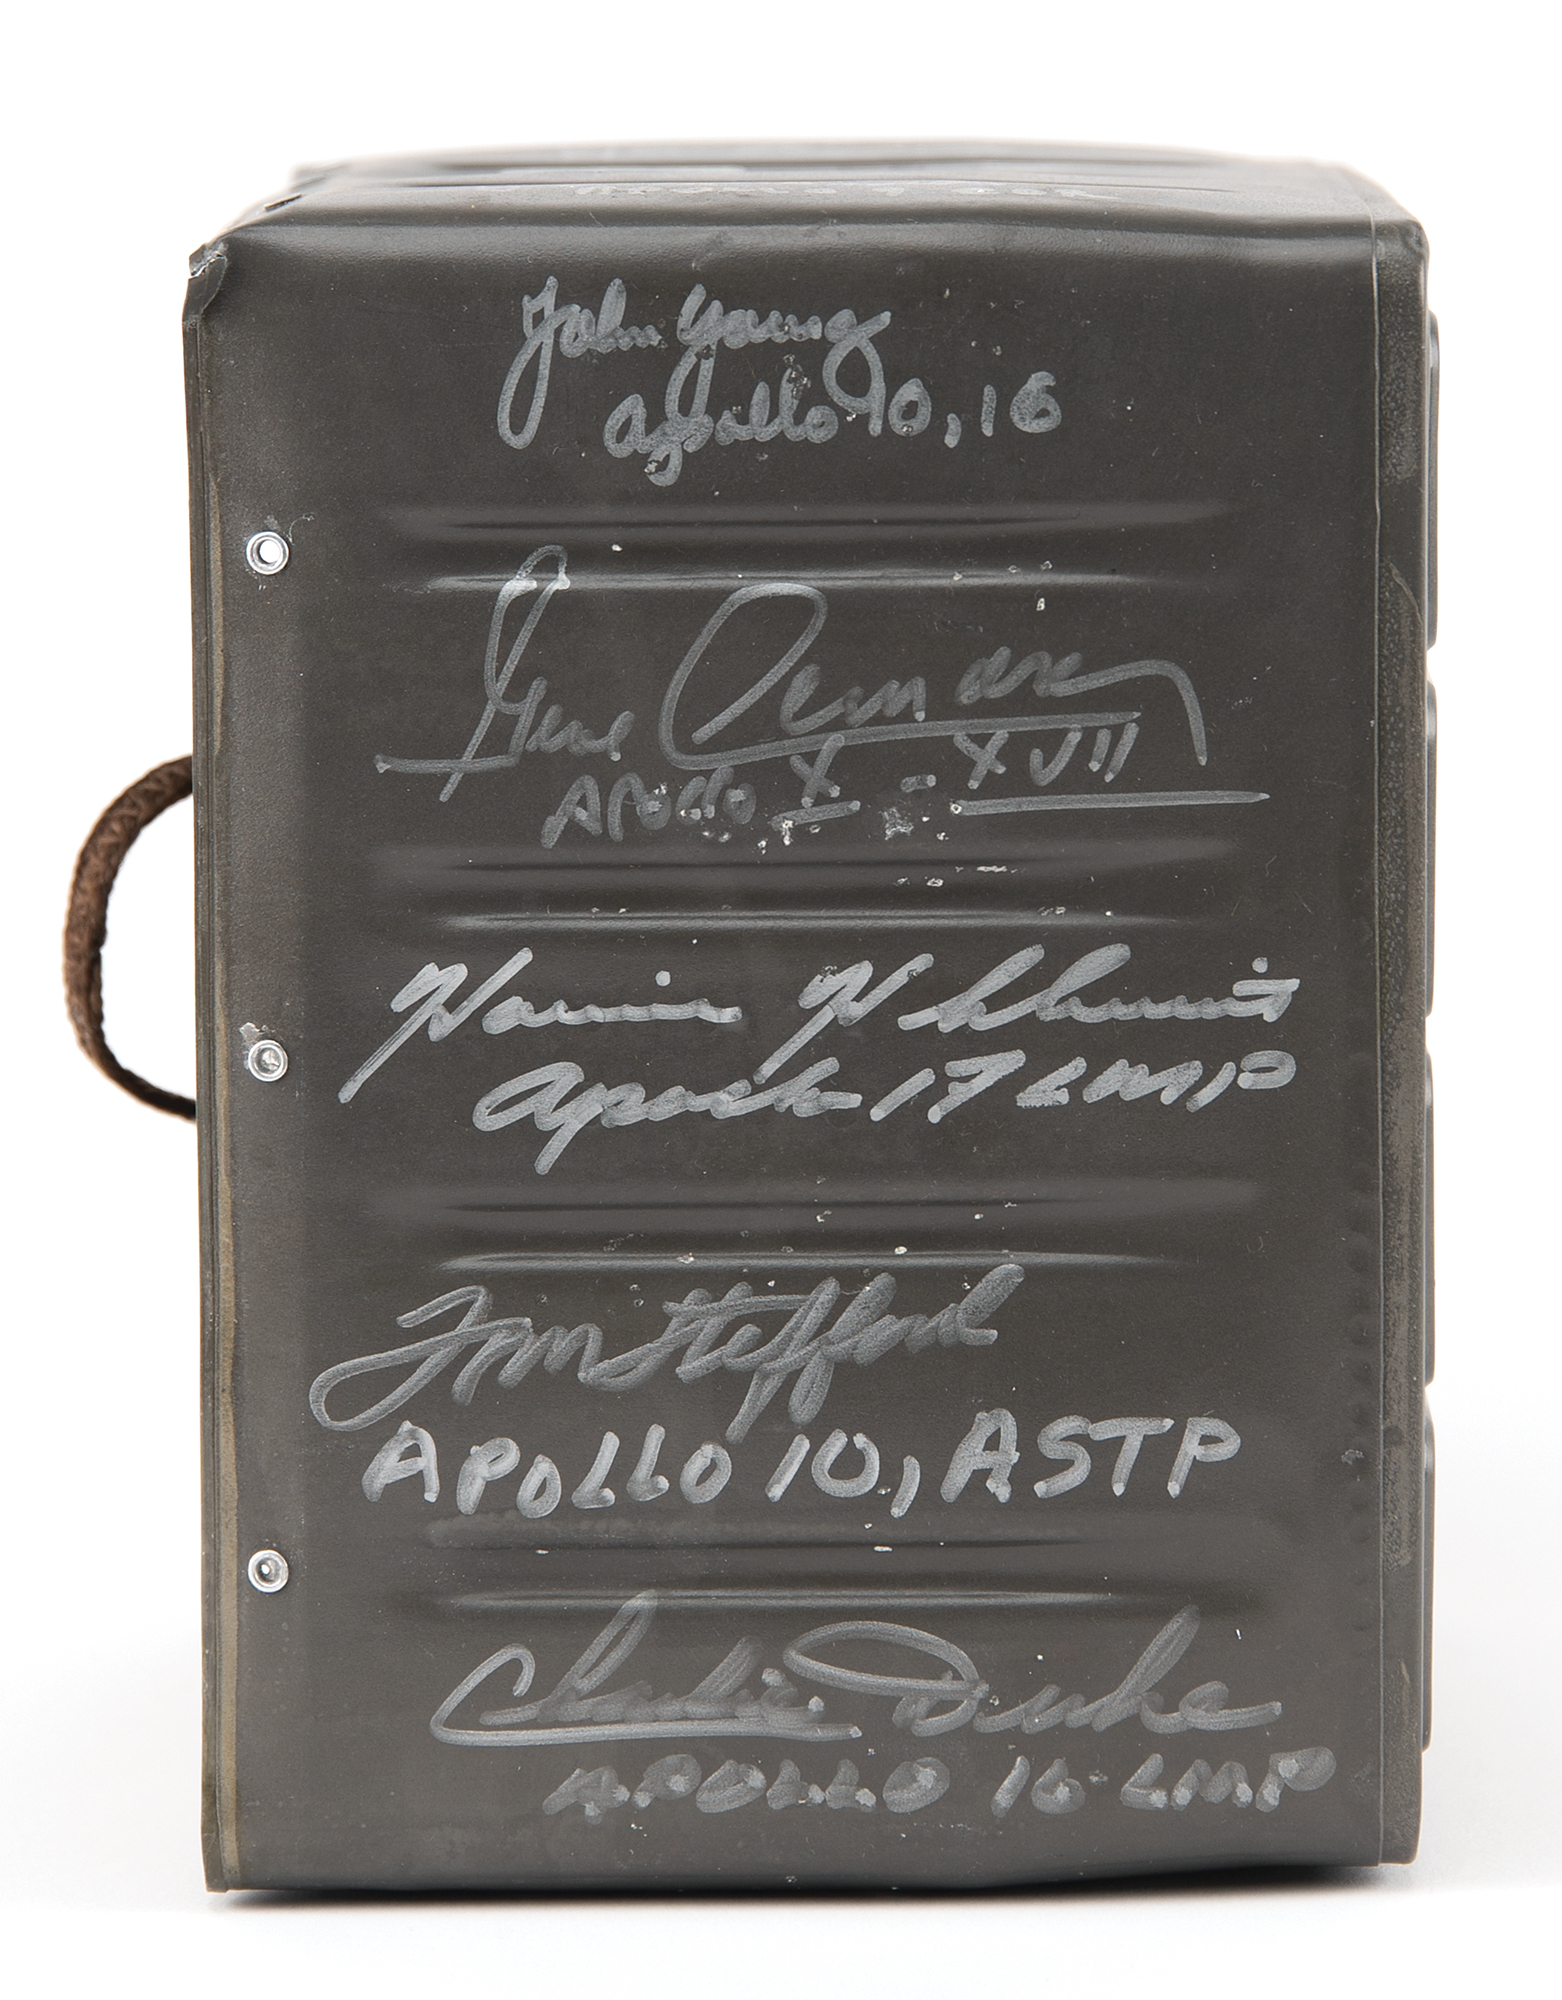 John Young
Apollo 10, 16
Gene Cernan
APOLLO X - XVII
Harrison H Schmitt
Apollo 17 LMP
Tom Stafford
APOLLO 10, ASTP
Charlie Duke
APOLLO 16 LMP